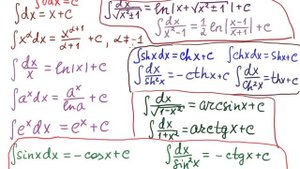 ∫0dx = C
∫dx = x + C
∫x^α dx = x^(α+1)/(α+1) + C, α ≠ -1
∫dx/x = ln|x| + C
∫a^x dx = a^x/ln a + C
∫e^x dx = e^x + C
∫sinxdx = -cosx + C
∫dx/√(x²±1) = ln|x + √(x²±1)| + C
∫dx/(x²-1) = 1/2 ln|(x-1)/(x+1)| + C
∫shxdx = chx + C ∫chxdx = shx + C
∫dx/sh²x = -cthx + C ∫dx/ch²x = thx + C
∫dx/√(1-x²) = arcsinx + C
∫dx/(1+x²) = arctgx + C
∫dx/sin²x = -ctgx + C